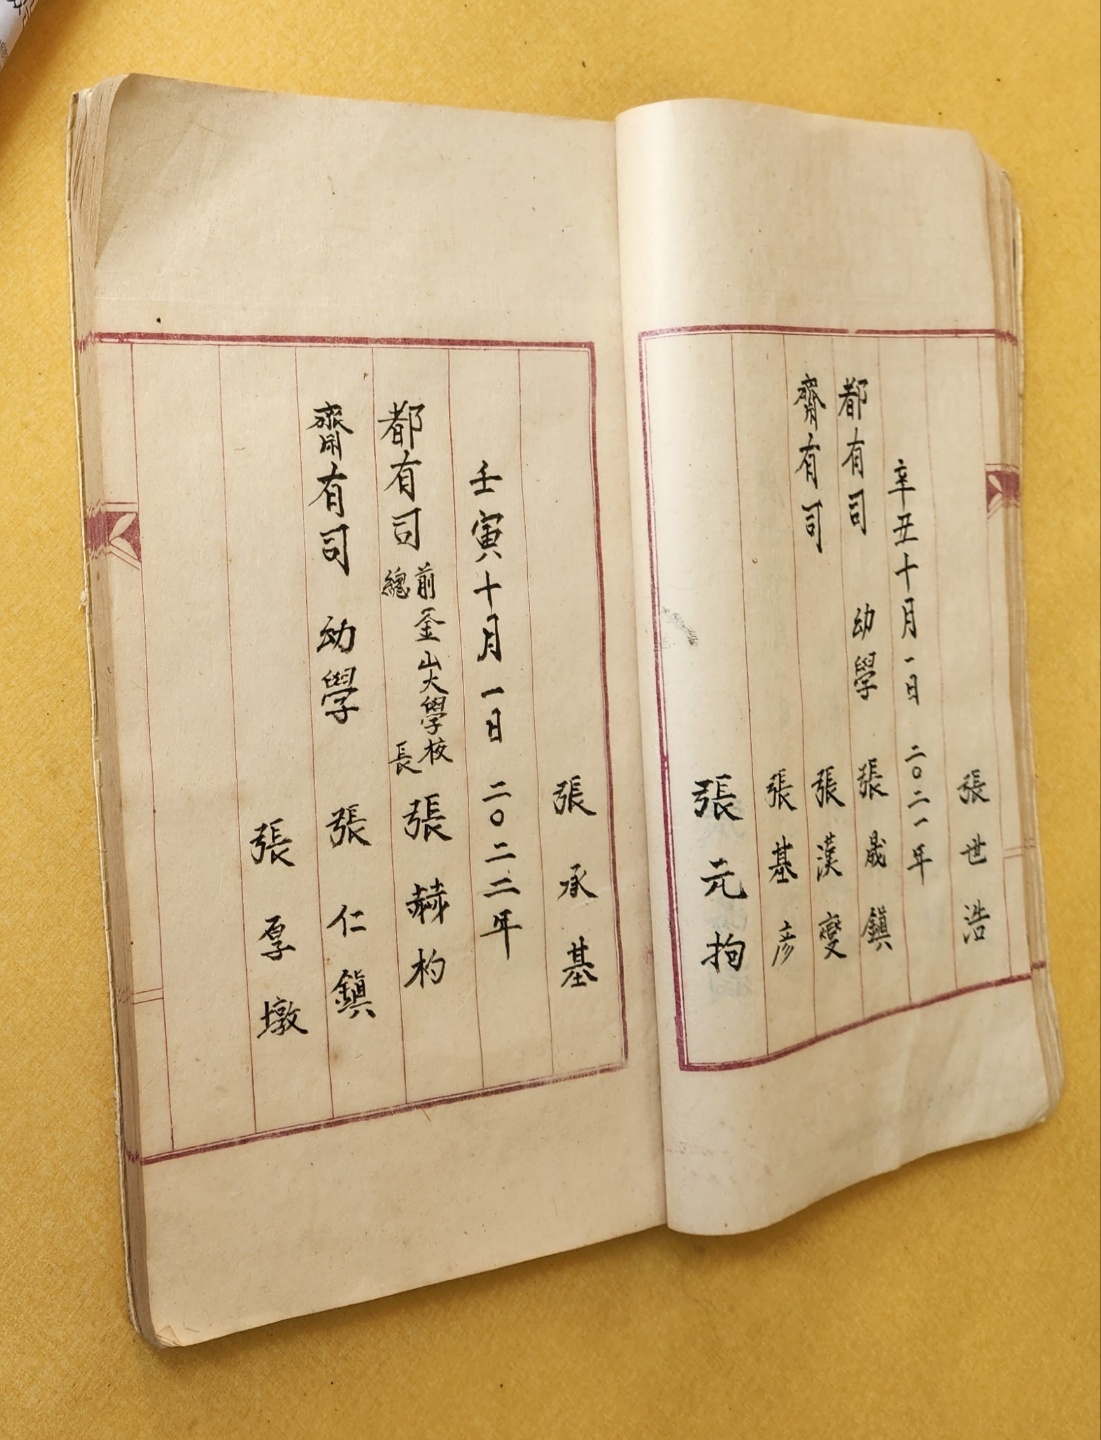 張世浩
辛丑十月一日 二〇二一年
都有司 幼學 張晟鎮
齋有司 張漢燮
張基彦
張元拘
張承基
壬寅十月一日 二〇二二年
都有司 前釜山大學校總長 張赫杓
齋有司 幼學 張仁鎭
張厚墩